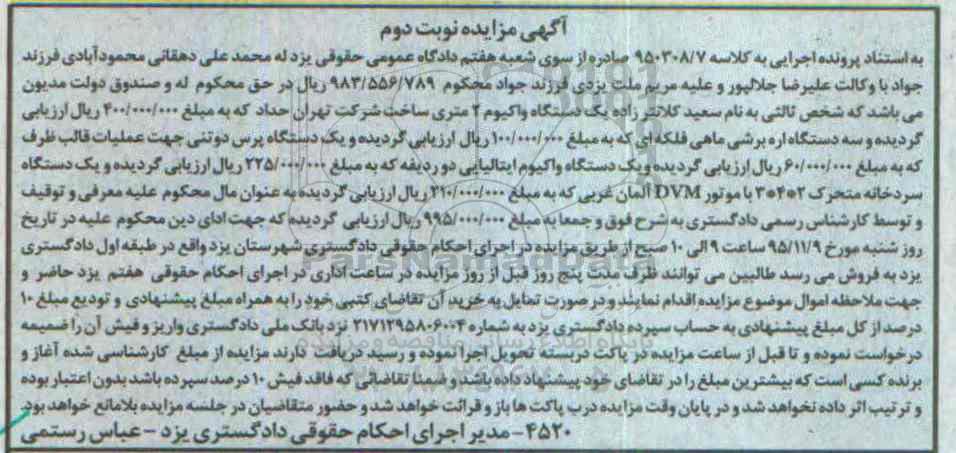 آگهی مزایده نوبت دوم
به استناد پرونده اجرایی به کلاسه ۹۵۰۳۰۸/۷ صادره از سوی شعبه هفتم دادگاه عمومی حقوقی یزد له محمد علی دهقانی محمودآبادی فرزند
جواد با وکالت علیرضا جلالپور و علیه مریم ملت یزدی فرزند جواد محکوم ۹۸۳/۵۵۶/۷۸۹ ریال در حق محکوم له و صندوق دولت مدیون
می باشد که شخص ثالثی به نام سعید کلانتر زاده یک دستگاه واکیوم ۲ متری ساخت شرکت تهران حداد که به مبلغ ۴۰۰/۰۰۰/۰۰۰ ریال ارزیابی
گردیده و سه دستگاه اره برشی ماهی فلکه ای که به مبلغ ۱۰۰/۰۰۰/۰۰۰ ریال ارزیابی گردیده و یک دستگاه پرس دوتنی جهت عملیات قالب ظرف
که به مبلغ ۶۰/۰۰۰/۰۰۰ ریال ارزیابی گردیده و یک دستگاه واکیوم ایتالیایی دو ردیفه که به مبلغ ۲۲۵/۰۰۰/۰۰۰ ریال ارزیابی گردیده و یک دستگاه
سردخانه متحرک ۲*۴*۳۵ با موتور DVM آلمان غربی که به مبلغ ۲۱۰/۰۰۰/۰۰۰ ریال ارزیابی گردیده به عنوان مال محکوم علیه معرفی و توقیف
و توسط کارشناس رسمی دادگستری به شرح فوق و جمعا به مبلغ ۹۹۵/۰۰۰/۰۰۰ ریال ارزیابی گردیده که جهت ادای دین محکوم علیه در تاریخ
روز شنبه مورخ ۹۵/۱۱/۹ ساعت ۹ الی ۱۰ صبح از طریق مزایده در اجرای احکام حقوقی دادگستری شهرستان یزد واقع در طبقه اول دادگستری
یزد به فروش می رسد طالبین می توانند ظرف مدت پنج روز قبل از روز مزایده در ساعات اداری در اجرای احکام حقوقی هفتم یزد حاضر و
جهت ملاحظه اموال موضوع مزایده اقدام نمایند و در صورت تمایل به خرید آن تقاضای کتبی خود را به همراه مبلغ پیشنهادی و تودیع مبلغ ۱۰
درصد از کل مبلغ پیشنهادی به حساب سپرده دادگستری یزد به شماره ۲۱۷۱۲۹۵۸۰۶۰۰۴ نزد بانک ملی دادگستری واریز و فیش آن را ضمیمه
درخواست نموده و تا قبل از ساعت مزایده در پاکت دربسته تحویل اجرا نموده و رسید دریافت دارند مزایده از مبلغ کارشناسی شده آغاز و
برنده کسی است که بیشترین مبلغ را در تقاضای خود پیشنهاد داده باشد و ضمنا تقاضائی که فاقد فیش ۱۰ درصد سپرده باشد بدون اعتبار بوده
و ترتیب اثر داده نخواهد شد و در پایان وقت مزایده درب پاکت ها باز و قرائت خواهد شد و حضور متقاضیان در جلسه مزایده بلامانع خواهد بود.
۴۵۲۰- مدیر اجرای احکام حقوقی دادگستری یزد - عباس رستمی